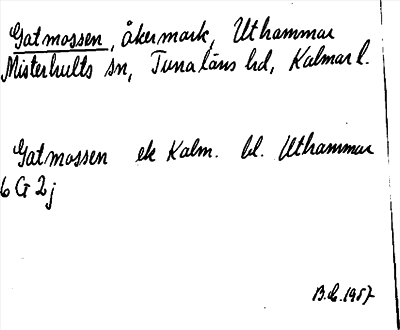 Gatmossen, åkermark, Uthammar
Misterhults sn, Tunaläns hd, Kalmar l.
Gatmossen ek Kalm. bl. Uthammar
6 G 2 j
1957